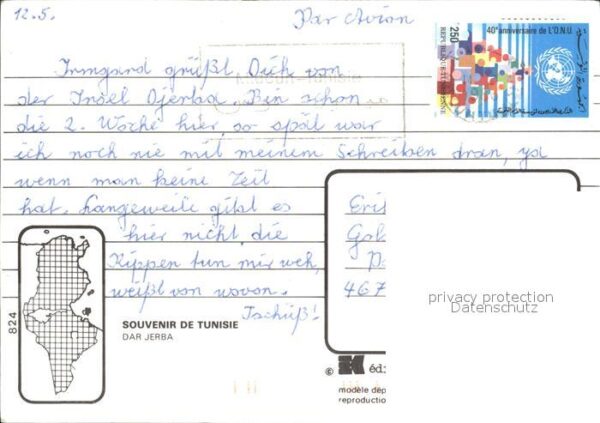 12.5.
Par Avion
40e anniversaire de L'O.N.U.
250
REPUBLIQUE TUNISIENNE
Irmgard grüßt Dich von
der Insel Djerba. Bin schon
die 2. Woche hier, so spät war
ich noch nie mit meinem Schreiben dran, ja
wenn man keine Zeit
hat. Langeweile gibt es
hier nicht, die
Rippen tun mir weh,
weißt von wovon.
Tschüß!
824
SOUVENIR DE TUNISIE
DAR JERBA
467
privacy protection
Datenschutz
© K édi
modèle dép
reproductio